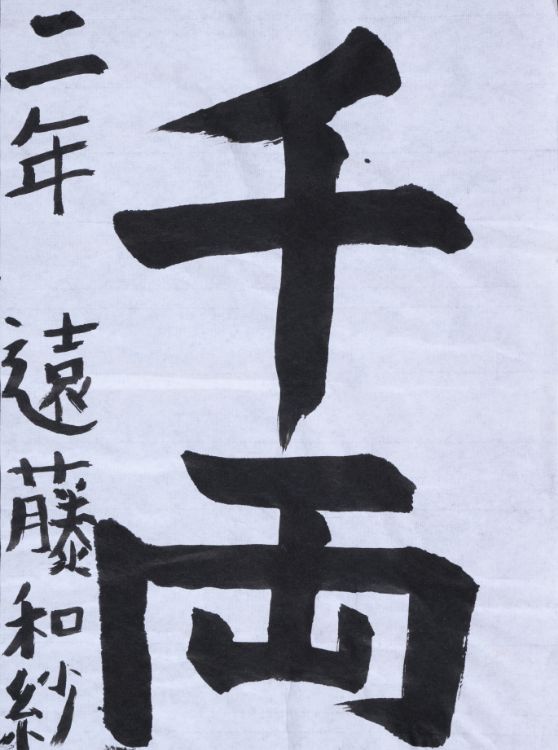 千両
二年 遠藤和紗